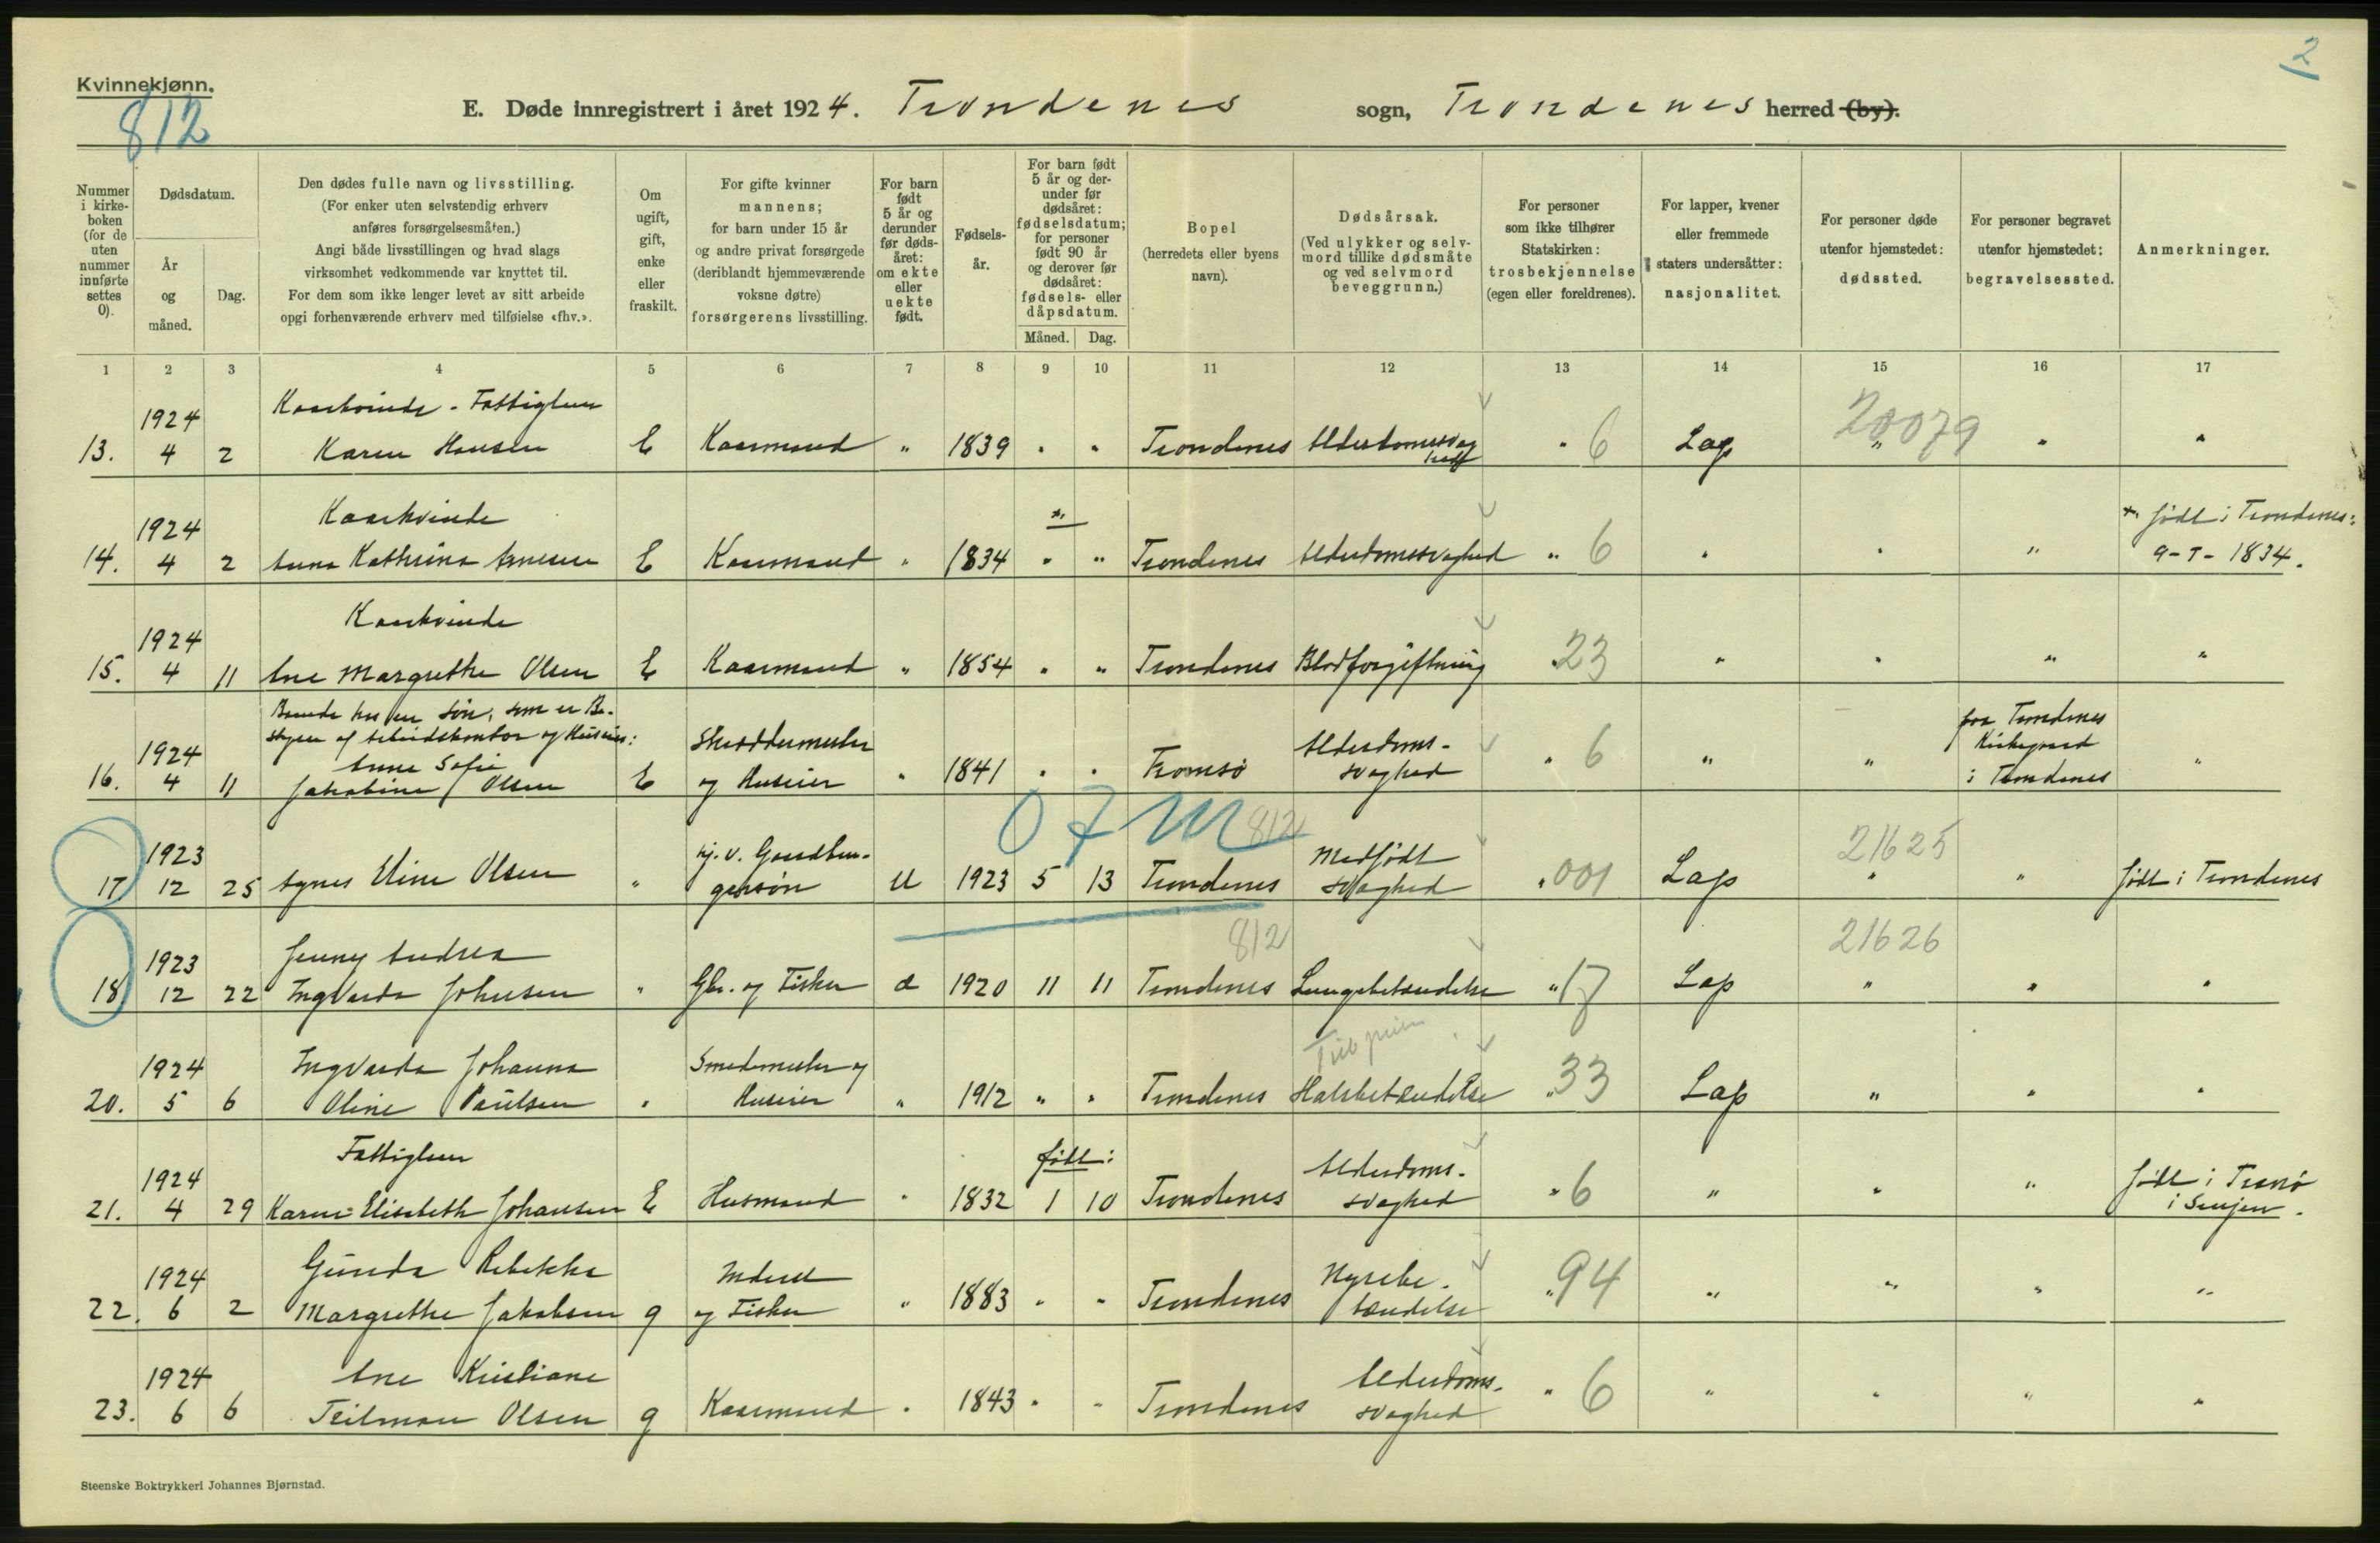 Kvinnekjønn.
812
2
E. Døde innregistrert i året 1924. Trondenes sogn, Trondenes herred (by).
Nummer i kirke-boken (for de uten nummer innførte settes 0).
Dødsdatum.
År og måned.
Dag.
Den dødes fulle navn og livsstilling.
(For enker uten selvstendig erhverv
anføres forsørgelsesmåten.)
Angi både livsstillingen og hvad slags
virksomhet vedkommende var knyttet til.
For dem som ikke lenger levet av sitt arbeide
opgi forhenværende erhverv med tilføielse «fhv.».
Om ugift, gift, enke eller fraskilt.
For gifte kvinner
mannens;
for barn under 15 år
og andre privat forsørgede
(deriblandt hjemmeværende
voksne døtre)
forsørgerens livsstilling.
For barn født 5 år og derunder før døds-året: om ekte eller uekte født.
Fødsels-år.
For barn født 5 år og der-under før dødsåret: fødselsdatum; for personer født 90 år og derover før dødsåret: fødsels- eller dåpsdatum.
Måned.
Dag.
Bopel
(herredets eller byens
navn).
Dødsårsak.
(Ved ulykker og selv-
mord tillike dødsmåte
og ved selvmord
beveggrunn.)
For personer
som ikke tilhører
Statskirken:
trosbekjennelse
(egen eller foreldrenes).
For lapper, kvener
eller fremmede
staters undersåtter:
nasjonalitet.
For personer døde
utenfor hjemstedet:
dødssted.
For personer begravet
utenfor hjemstedet:
begravelsessted.
Anmerkninger.
1 2 3 4 5 6 7 8 9 10 11 12 13 14 15 16 17
Kaarkvinde - Fattiglem
13. 1924 4 2 Karen Hansen E Kaarmand " 1839 " " Trondenes Alderdomssvaghed " 6 Lap 20079 " " "
Kaarkvinde
14. 1924 4 2 Anna Kathrina Arnesen E Kaarmand " 1834 x " " Trondenes Alderdomssvaghed " 6 " " " x født i Trondenes:
9-7-1834.
Kaarkvinde
15. 1924 4 11 Ane Margrethe Olsen E Kaarmand " 1854 " " Trondenes Blodforgiftning " 23 " " " "
Boende hos en Søn, som er Be-
styrer af Arbeidskontor og Huseier:
16. 1924 4 11 Anne Sofie
Jakobine Olsen E Skræddermester
og Huseier " 1841 " " Tromsø Alderdoms-
svaghed " 6 " " fra Trondenes
Kirkegaard
i Trondenes "
07 m 812
17 1923 12 25 Agnes Eline Olsen " Gaardbru-
gersøn U 1923 5 13 Trondenes Medfødt
svaghed " 001 Lap 21625 " " født i Trondenes
812
18 1923 12 22 Jenny Andrea
Ingvarda Johnsen " Gbr. og Fisker æ 1920 11 11 Trondenes Lungebetændelse " 17 Lap 21626 " " "
20. 1924 5 6 Ingvarda Johanna
Oline Paulsen " Smedemester og
Huseier " 1912 " " Trondenes Halsbetændelse " 33 Lap " " "
Fattiglem
21. 1924 4 29 Karen Elisabeth Johansen E Husmand " 1832 født: 1 10 Trondenes Alderdoms-
svaghed " 6 " " " født i Tranø
i Senjen.
22. 1924 6 2 Gunda Rebekka
Margrethe Jakobsen g Inderst
og Fisker " 1883 " " Trondenes Nyrebe-
tændelse " 94 " " " "
23. 1924 6 6 Ane Kristiane
Teilman Olsen g Kaarmand " 1843 " " Trondenes Alderdoms-
svaghed " 6 " " " "
Steenske Boktrykkeri Johannes Bjørnstad.